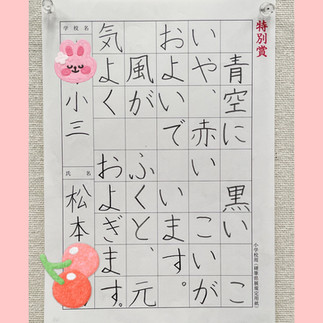 特別賞
青空に　黒いこ
いや、赤いこいが
およいでいます。
風がふくと、元
気よくおよぎます。
学校名
小三
氏名
松本